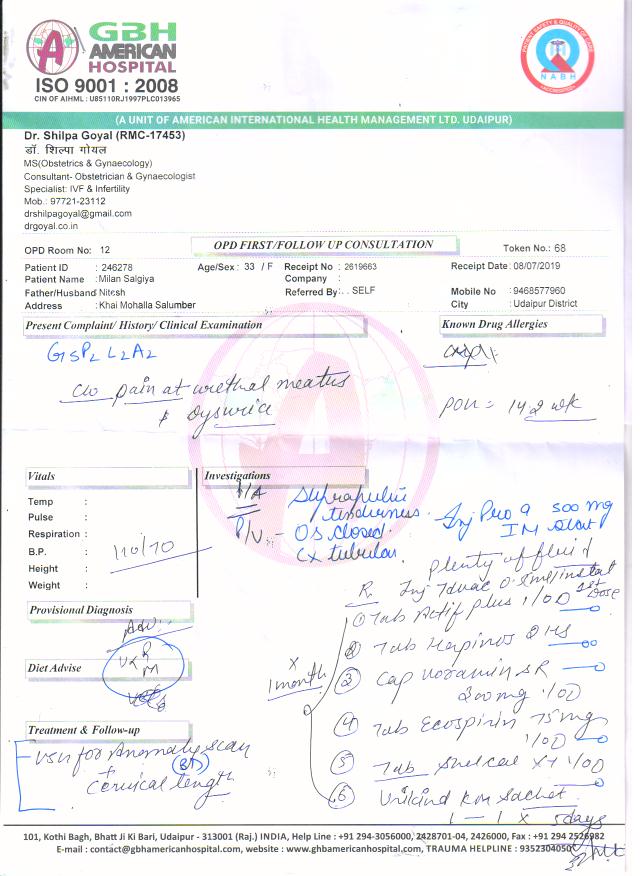 GBH
AMERICAN
HOSPITAL
ISO 9001 : 2008
CIN OF AIHML : U85110RJ1997PLC013965
PATIENT SAFETY & QUALITY OF CARE
NABH
ACCREDITATION
(A UNIT OF AMERICAN INTERNATIONAL HEALTH MANAGEMENT LTD. UDAIPUR)
Dr. Shilpa Goyal (RMC-17453)
डॉ. शिल्पा गोयल
MS(Obstetrics & Gynaecology)
Consultant- Obstetrician & Gynaecologist
Specialist: IVF & Infertility
Mob.: 97721-23112
drshilpagoyal@gmail.com
drgoyal.co.in
OPD Room No: 12 OPD FIRST/FOLLOW UP CONSULTATION Token No.: 68
Patient ID : 246278 Age/Sex : 33 / F Receipt No : 2619663 Receipt Date : 08/07/2019
Patient Name : Milan Salgiya Company :
Father/Husband Nitesh Referred By: . . SELF Mobile No : 9468577960
Address : Khai Mohalla Salumber City : Udaipur District
Present Complaint/ History/ Clinical Examination Known Drug Allergies
G5P2L2A2
c/o pain at urethal meatus
& dysuria
POG = 14.2 wk
Vitals Investigations
Temp :
Pulse :
Respiration :
B.P. : 110/70
Height :
Weight :
P/A Suprapubic
tenderness.
P/V - OS closed.
CX tubular
Inj Pro 9 500 mg
IM start
plenty of fluid
Rx Inj Tdvac 0.5ml/instat
1st Dose
① Tab Actif plus 1/OD
② Tab Herpinos HS
③ Cap SR
200mg 1/OD
④ Tab Ecospirin 75mg
1/OD
⑤ Tab Shelcal XT 1/OD
⑥ Urikind KM Sachet
1 - 1 x 5days
x
1 month
Provisional Diagnosis
Adv.
Diet Advise
U R
M
Treatment & Follow-up
USG for Anomaly scan
+
Cervical length
101, Kothi Bagh, Bhatt Ji Ki Bari, Udaipur - 313001 (Raj.) INDIA, Help Line : +91 294-3056000, 2428701-04, 2426000, Fax : +91 294 2526982
E-mail : contact@gbhamericanhospital.com, website : www.gbhamericanhospital.com, TRAUMA HELPLINE : 9352304050